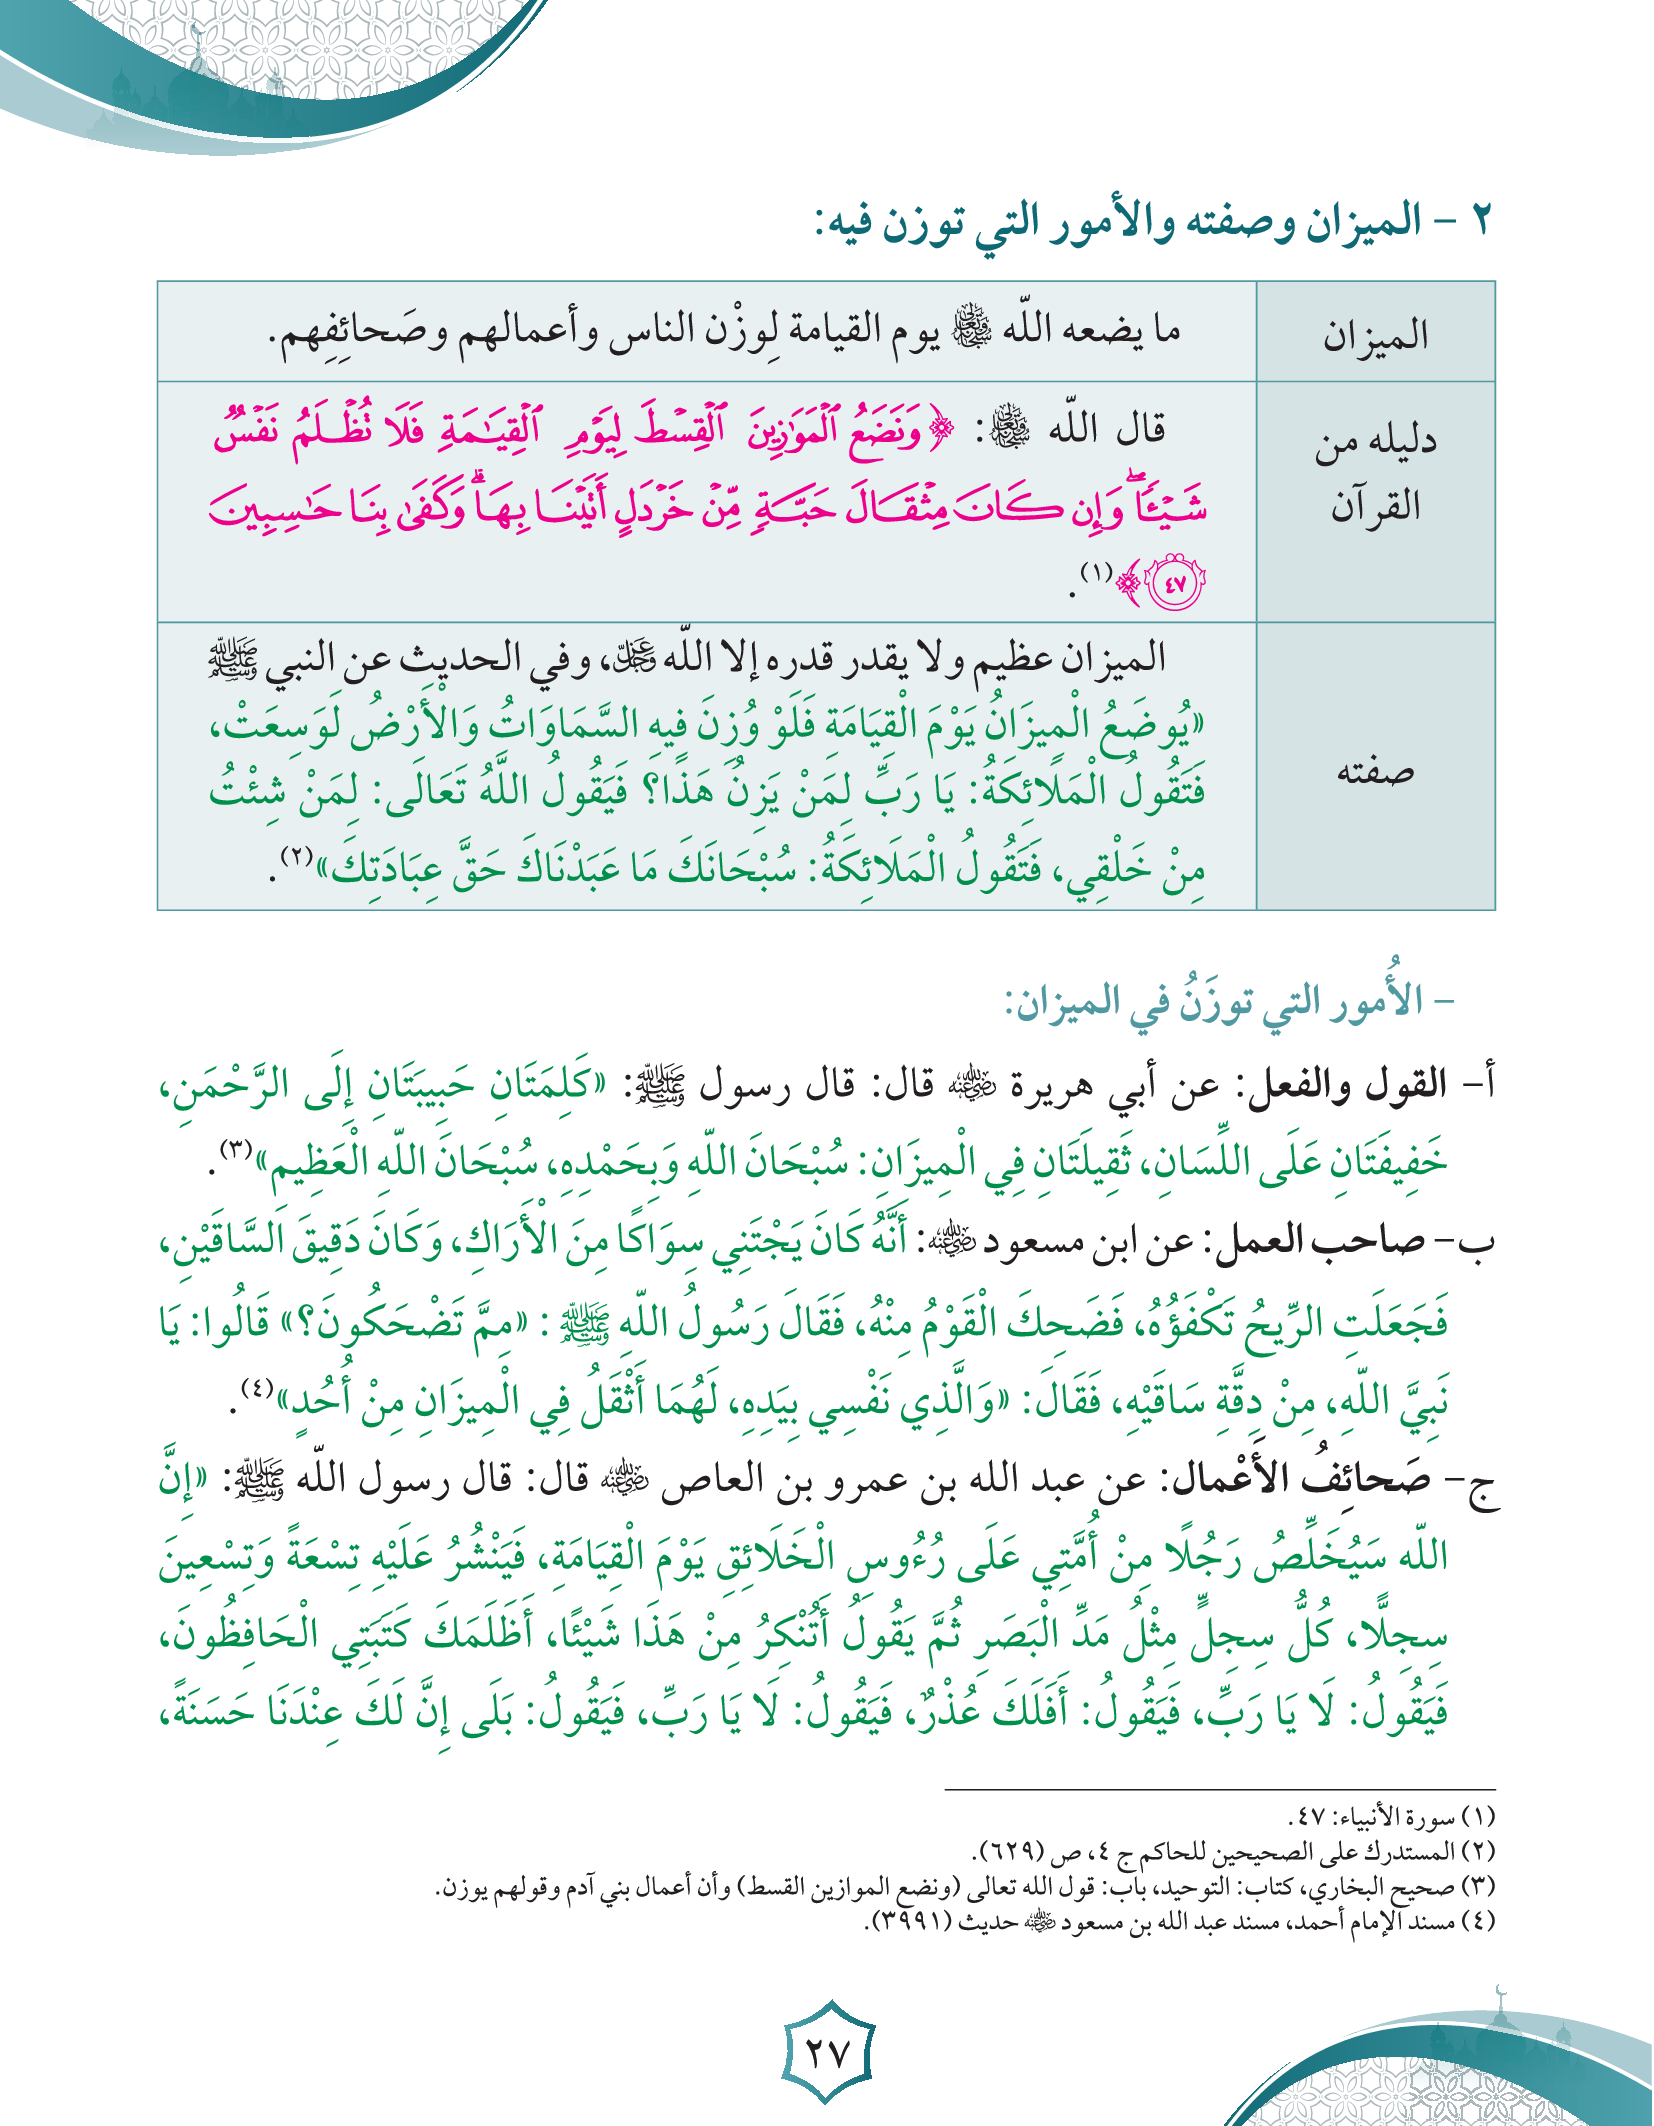 ٢ - الميزان وصفته والأمور التي توزن فيه:
الميزان
ما يضعه اللّه ﷾ يوم القيامة لِوزْن الناس وأعمالهم وصَحائِفِهم.
دليله من
القرآن
قال اللّه ﷾: ﴿وَنَضَعُ ٱلۡمَوَٰزِينَ ٱلۡقِسۡطَ لِيَوۡمِ ٱلۡقِيَٰمَةِ فَلَا تُظۡلَمُ نَفۡسٞ
شَيۡـٔٗاۖ وَإِن كَانَ مِثۡقَالَ حَبَّةٖ مِّنۡ خَرۡدَلٍ أَتَيۡنَا بِهَاۗ وَكَفَىٰ بِنَا حَٰسِبِينَ
٤٧﴾(١).
صفته
الميزان عظيم ولا يقدر قدره إلا اللّه عَزَّوَجَلَّ، وفي الحديث عن النبي ﷺ
«يُوضَعُ الْمِيزَانُ يَوْمَ الْقِيَامَةِ فَلَوْ وُزِنَ فِيهِ السَّمَاوَاتُ وَالْأَرْضُ لَوَسِعَتْ،
فَتَقُولُ الْمَلَائِكَةُ: يَا رَبِّ لِمَنْ يَزِنُ هَذَا؟ فَيَقُولُ اللَّهُ تَعَالَى: لِمَنْ شِئْتُ
مِنْ خَلْقِي، فَتَقُولُ الْمَلَائِكَةُ: سُبْحَانَكَ مَا عَبَدْنَاكَ حَقَّ عِبَادَتِكَ»(٢).
- الأُمور التي توزَنُ في الميزان:
أ- القول والفعل: عن أبي هريرة رضي الله عنه قال: قال رسول ﷺ: «كَلِمَتَانِ حَبِيبَتَانِ إِلَى الرَّحْمَنِ،
خَفِيفَتَانِ عَلَى اللِّسَانِ، ثَقِيلَتَانِ فِي الْمِيزَانِ: سُبْحَانَ اللّهِ وَبِحَمْدِهِ، سُبْحَانَ اللّهِ الْعَظِيمِ»(٣).
ب- صاحب العمل: عن ابن مسعود رضي الله عنه: أَنَّهُ كَانَ يَجْتَنِي سِوَاكًا مِنَ الْأَرَاكِ، وَكَانَ دَقِيقَ السَّاقَيْنِ،
فَجَعَلَتِ الرِّيحُ تَكْفَؤُهُ، فَضَحِكَ الْقَوْمُ مِنْهُ، فَقَالَ رَسُولُ اللّهِ ﷺ : «مِمَّ تَضْحَكُونَ؟» قَالُوا: يَا
نَبِيَّ اللّهِ، مِنْ دِقَّةِ سَاقَيْهِ، فَقَالَ: «وَالَّذِي نَفْسِي بِيَدِهِ، لَهُمَا أَثْقَلُ فِي الْمِيزَانِ مِنْ أُحُدٍ»(٤).
ج- صَحائِفُ الأَعْمال: عن عبد الله بن عمرو بن العاص رضي الله عنه قال: قال رسول اللّه ﷺ: «إِنَّ
اللّه سَيُخَلِّصُ رَجُلًا مِنْ أُمَّتِي عَلَى رُءُوسِ الْخَلَائِقِ يَوْمَ الْقِيَامَةِ، فَيَنْشُرُ عَلَيْهِ تِسْعَةً وَتِسْعِينَ
سِجِلًّا، كُلُّ سِجِلٍّ مِثْلُ مَدِّ الْبَصَرِ ثُمَّ يَقُولُ أَتُنْكِرُ مِنْ هَذَا شَيْئًا، أَظَلَمَكَ كَتَبَتِي الْحَافِظُونَ،
فَيَقُولُ: لَا يَا رَبِّ، فَيَقُولُ: أَفَلَكَ عُذْرٌ، فَيَقُولُ: لَا يَا رَبِّ، فَيَقُولُ: بَلَى إِنَّ لَكَ عِنْدَنَا حَسَنَةً،
(١) سورة الأنبياء: ٤٧.
(٢) المستدرك على الصحيحين للحاكم ج ٤، ص (٦٢٩).
(٣) صحيح البخاري، كتاب: التوحيد، باب: قول الله تعالى (ونضع الموازين القسط) وأن أعمال بني آدم وقولهم يوزن.
(٤) مسند الإمام أحمد، مسند عبد الله بن مسعود رضي الله عنه حديث (٣٩٩١).
٢٧